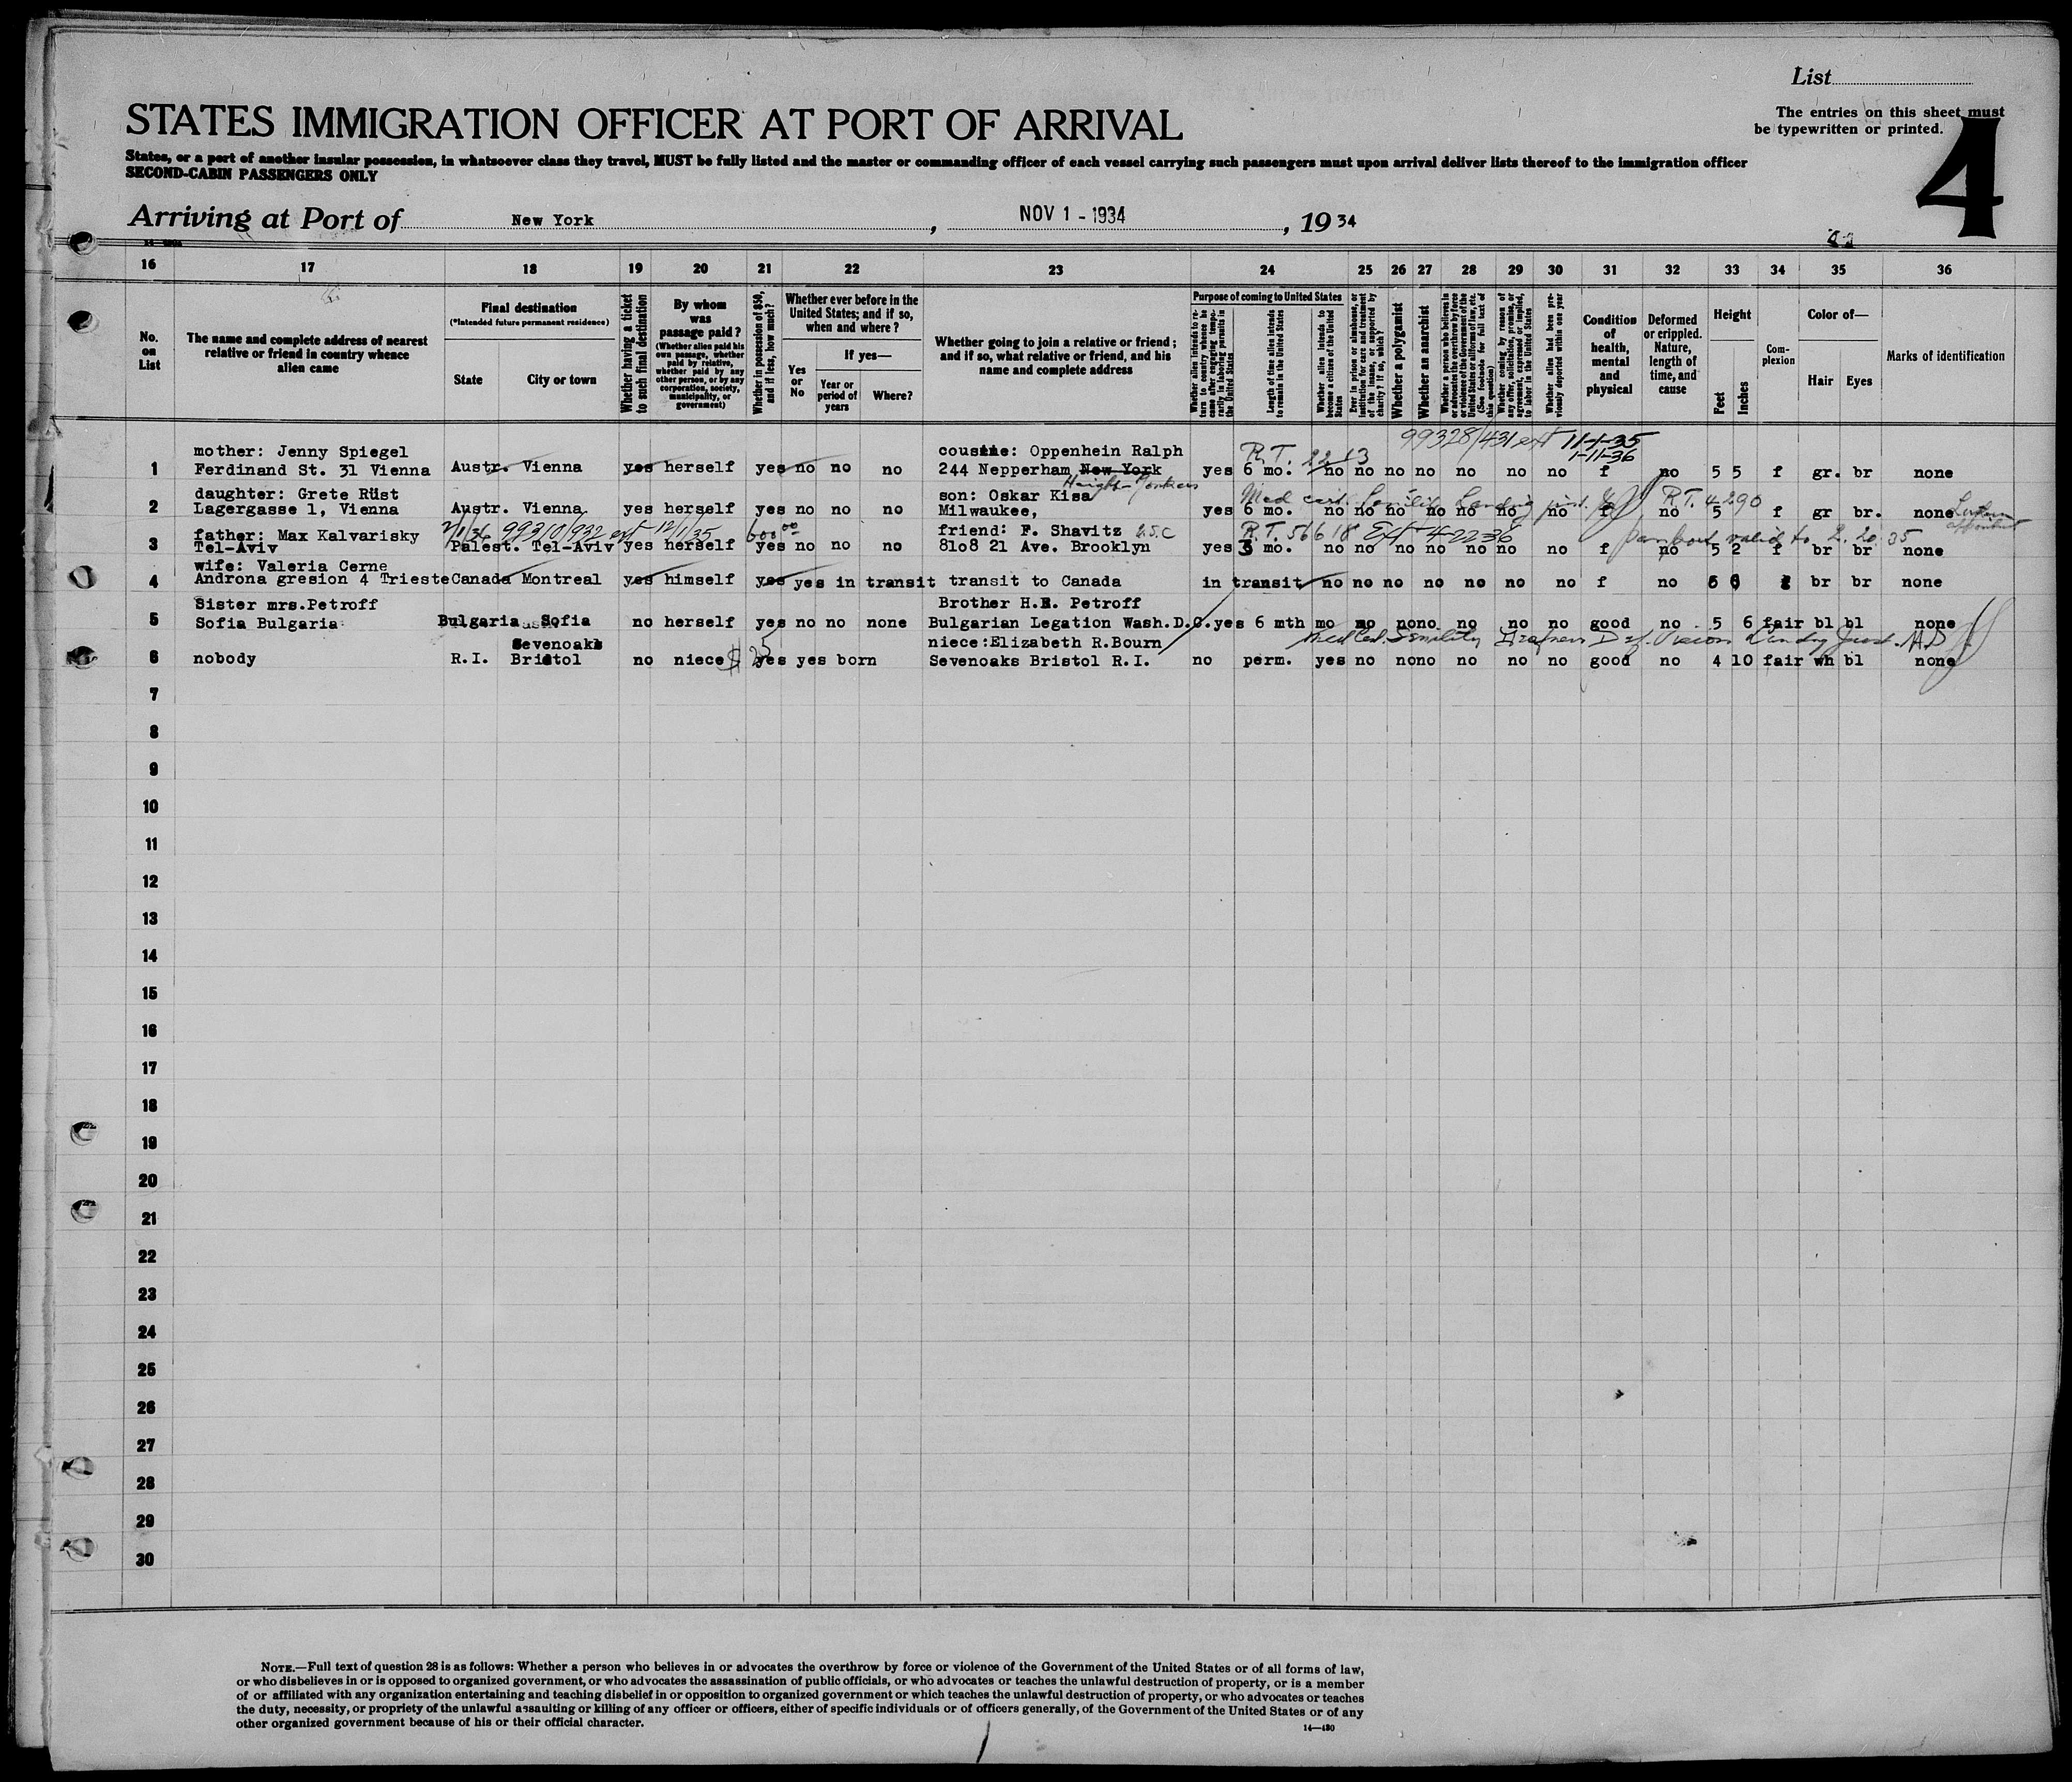 List
The entries on this sheet must
be typewritten or printed.
4
STATES IMMIGRATION OFFICER AT PORT OF ARRIVAL
States, or a port of another insular possession, in whatsoever class they travel, MUST be fully listed and the master or commanding officer of each vessel carrying such passengers must upon arrival deliver lists thereof to the immigration officer
SECOND-CABIN PASSENGERS ONLY
Arriving at Port of New York, NOV 1 - 1934, 1934
16 17 18 19 20 21 22 23 24 25 26 27 28 29 30 31 32 33 34 35 36
No. on List
The name and complete address of nearest relative or friend in country whence alien came
Final destination
(*Intended future permanent residence)
State
City or town
Whether having a ticket to such final destination
By whom was passage paid?
(Whether alien paid his own passage, whether paid by relative, whether paid by any other person, or by any corporation, society, municipality, or government)
Whether in possession of $50, and if less, how much?
Whether ever before in the United States; and if so, when and where?
Yes or No
If yes—
Year or period of years
Where?
Whether going to join a relative or friend; and if so, what relative or friend, and his name and complete address
Purpose of coming to United States
Whether alien intends to return to country whence he came after engaging temporarily in laboring pursuits in the United States
Length of time alien intends to remain in the United States
Whether alien intends to become a citizen of the United States
Ever in prison or almshouse, or institution for care and treatment of the insane, or supported by charity? If so, which?
Whether a polygamist
Whether an anarchist
Whether a person who believes in or advocates the overthrow by force or violence of the Government of the United States or all forms of law, etc. (See footnote for full text of this question)
Whether coming by reason of any offer, solicitation, promise, or agreement, expressed or implied, to labor in the United States
Whether alien had been previously deported within one year
Condition of health, mental and physical
Deformed or crippled. Nature, length of time, and cause
Height
Feet
Inches
Complexion
Color of—
Hair
Eyes
Marks of identification
99328/431 ext 11-1-35
1-11-36
mother: Jenny Spiegel cousine: Oppenhein Ralph R.T. 2213
1 Ferdinand St. 31 Vienna Austr. Vienna yes herself yes no no no 244 Nepperham New York yes 6 mo. no no no no no no no f no 5 5 f gr. br none
Heights Yonkers
daughter: Grete Rüst son: Oskar Kisa Med cert. Senility Landing R.T. 4290
2 Lagergasse 1, Vienna Austr. Vienna yes herself yes no no no Milwaukee, yes 6 mo. no no no no no no no f no 5 f gr br. none
father: Max Kalvarisky 2/1/36 99310/932 ext 12/1/35 600.00 friend: F. Shavitz U.S.C R.T. 56618 Ext 4-22 36 passport valid to 2. 20. 35
3 Tel-Aviv Palest. Tel-Aviv yes herself yes no no no 81o8 21 Ave. Brooklyn yes 3 mo. no no no no no no no f no 5 2 f br br none
wife: Valeria Cerne
4 Androna gresion 4 Trieste Canada Montreal yes himself yes yes in transit transit to Canada in transit no no no no no no no f no 5 br br none
Sister mrs.Petroff Brother H.R. Petroff
5 Sofia Bulgaria Bulgaria Sofia no herself yes no no none Bulgarian Legation Wash.D.C. yes 6 mth no no nono no no no good no 5 6 fair bl bl none
Sevenoaks $25 niece:Elizabeth R.Bourn Med Cert. Senility Deafness Def. Vision
6 nobody R.I. Bristol no niece yes yes born Sevenoaks Bristol R.I. no perm. yes no nono no no no good no 4 10 fair wh bl none
7
8
9
10
11
12
13
14
15
16
17
18
19
20
21
22
23
24
25
26
27
28
29
30
NOTE.—Full text of question 28 is as follows: Whether a person who believes in or advocates the overthrow by force or violence of the Government of the United States or of all forms of law,
or who disbelieves in or is opposed to organized government, or who advocates the assassination of public officials, or who advocates or teaches the unlawful destruction of property, or is a member
of or affiliated with any organization entertaining and teaching disbelief in or opposition to organized government or which teaches the unlawful destruction of property, or who advocates or teaches
the duty, necessity, or propriety of the unlawful assaulting or killing of any officer or officers, either of specific individuals or of officers generally, of the Government of the United States or of any
other organized government because of his or their official character.
14—430